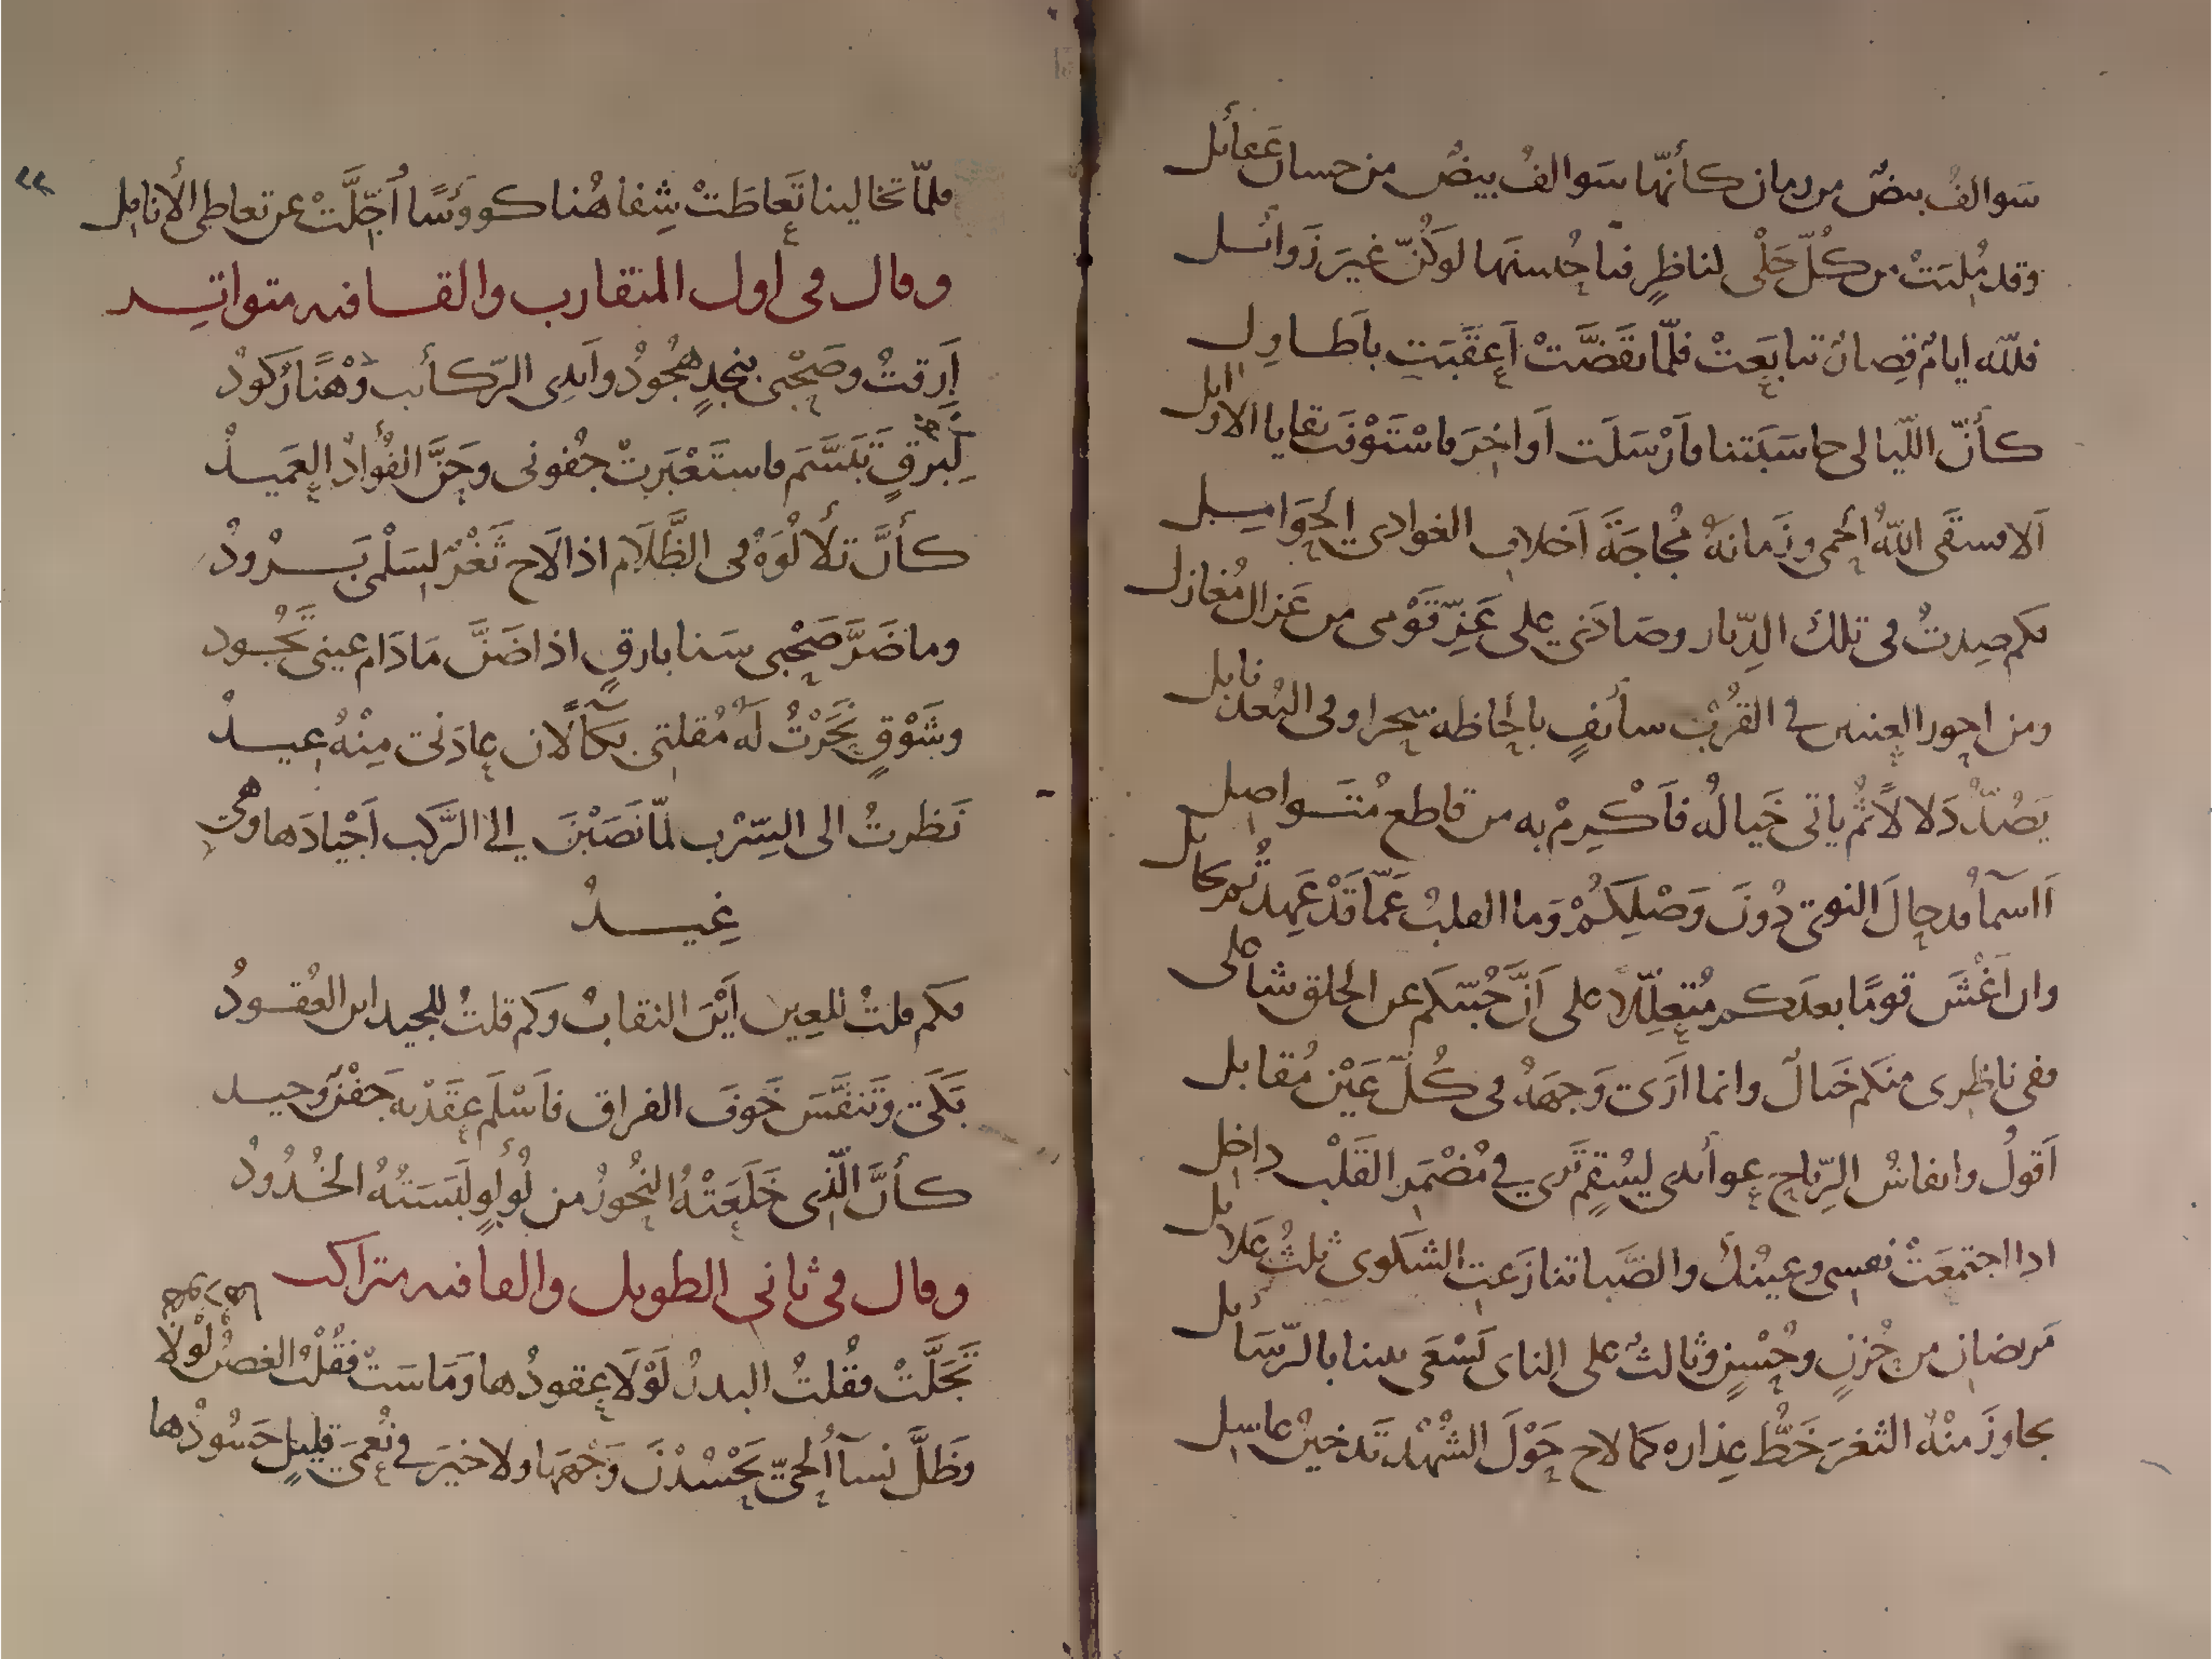 سَوالفُ بيضٌ من زمان كأنّها سَوالفُ بيضٌ من حسان عَقائل
وقد مُلِيَتْ من كُلّ حَلْى لناظِرٍ فيا حُسنَها لوَكُنّ غيرَ زَوائل
فللّه ايامٌ قِصارٌ تتابَعَتْ فلّما تقَضَّتْ أَعقَبَتِ بأَطاوِل
كأنّ اللّيالى حاسَبَتنا فأَرْسَلَت أَواخِرَ فاسْتَوْفَت بقايا الاوايل
أَلا فسقَى اللّهُ الحمى وزَمانَهُ مُجاجَةَ أَخلاف الغوادى الحَوَافِل
فكم صِدتُ فى تلك الدِّيار وصَادَنى على عَزِّ قَوْمى من غزال مُغازل
ومن احور العينين فى القُرْب سائفٍ بالحاظه سحرا وفى البُعد نابل
يَصُدُّ دَلالاً ثُم ياتى خَيالُه فأَكْرِمْ به من قاطع مُتَواصِل
أَاسمآ قد حالَ النوى دُونَ وَصْلِكُمْ وَما القلبُ عَمّا قَدْ عَهِدتُم بحايل
وان أَغْشَ قومًا بعدَكم مُتعِلِّلا على أَنَّ حُبّكم عن الخلق شاغلى
ففى ناظِرى منكم خَيالٌ وانما أَرَى وَجهَهُ فى كُلّ عَيْنٍ مُقابل
أَقولُ وانفاسُ الرِّياح عوائدى لِسُقمٍ ثَرى فى مُضْمَر القَلْب داخِل
اذا اجتمعَتْ نفسى وعيْنُك والصَّبا تنازَعت الشكوى ثلثُ عَلايل
مَريضانِ من حُزنٍ وحُسْنٍ وثالثٌ على الناى يَسْعَى بيننا بالرّسَائل
تجاوزَ مِنْهُ الثغرَ خَطُّ عِذاره كما لاح حَوْلَ الشُهْد تَدخينُ عاسل
فلمّا تخالينا تَعاطَتْ شِفاهُنا كووُسًا أُجِلَّتْ عن تعاطى الأنامِل
وقال فى اول المتقارب والقافيه متواتر
أَرِقتُ وصَحْبى بنجدٍ هُجُودُ وأَيدى الرّكائب وَهْنًا رُكودُ
لِبَرْقٍ تَبَسَّمَ فاستَعْبَرتْ جفُونى وحَنَّ الفُؤادُ العَميدُ
كأنَّ تلألُوَهُ فى الظَّلَام اذا لَاح ثَغْرٌ لسَلْمى بَرُودُ
وما ضَرَّ صَحْبى سَنا بارِقٍ اذا ضَنَّ مَادَام عينى تَجُود
وشَوْقٍ نَحَرْتُ لَهُ مُقلتى بكآ لان عادَنى مِنْهُ عِيدُ
نَظرتُ الى السِّرْب لمّا نَصَبْنَ الى الرَّكب أَجْيادَها وهى
غِيدُ
فكم قلتُ للعِين أَيْنَ النقابُ وَكم قلتُ للجيد اين العُقودُ
بَكَى وتَنفَّسَ خَوفَ الفراق فأَسْلَم عِقدْيه جَفْنٌ وجيد
كأنَّ الّذى خَلَعَتْهُ النُحورُ من لُولُوٍ لَبَسَتْهُ الخُدُودُ
وقال فى ثانى الطويل والقافيه متراكب
تَجَلَّتْ فقُلتُ البدرُ لَوْلَا عقودُها وَمَاسَتْ فقُلْتُ الغصنُ لَوْلا
وَظَلَّ نسآ الحىّ يَحْسُدْنَ وَجْهَها ولا خيَر فى نُعمَى قليلٍ حَسُودُها